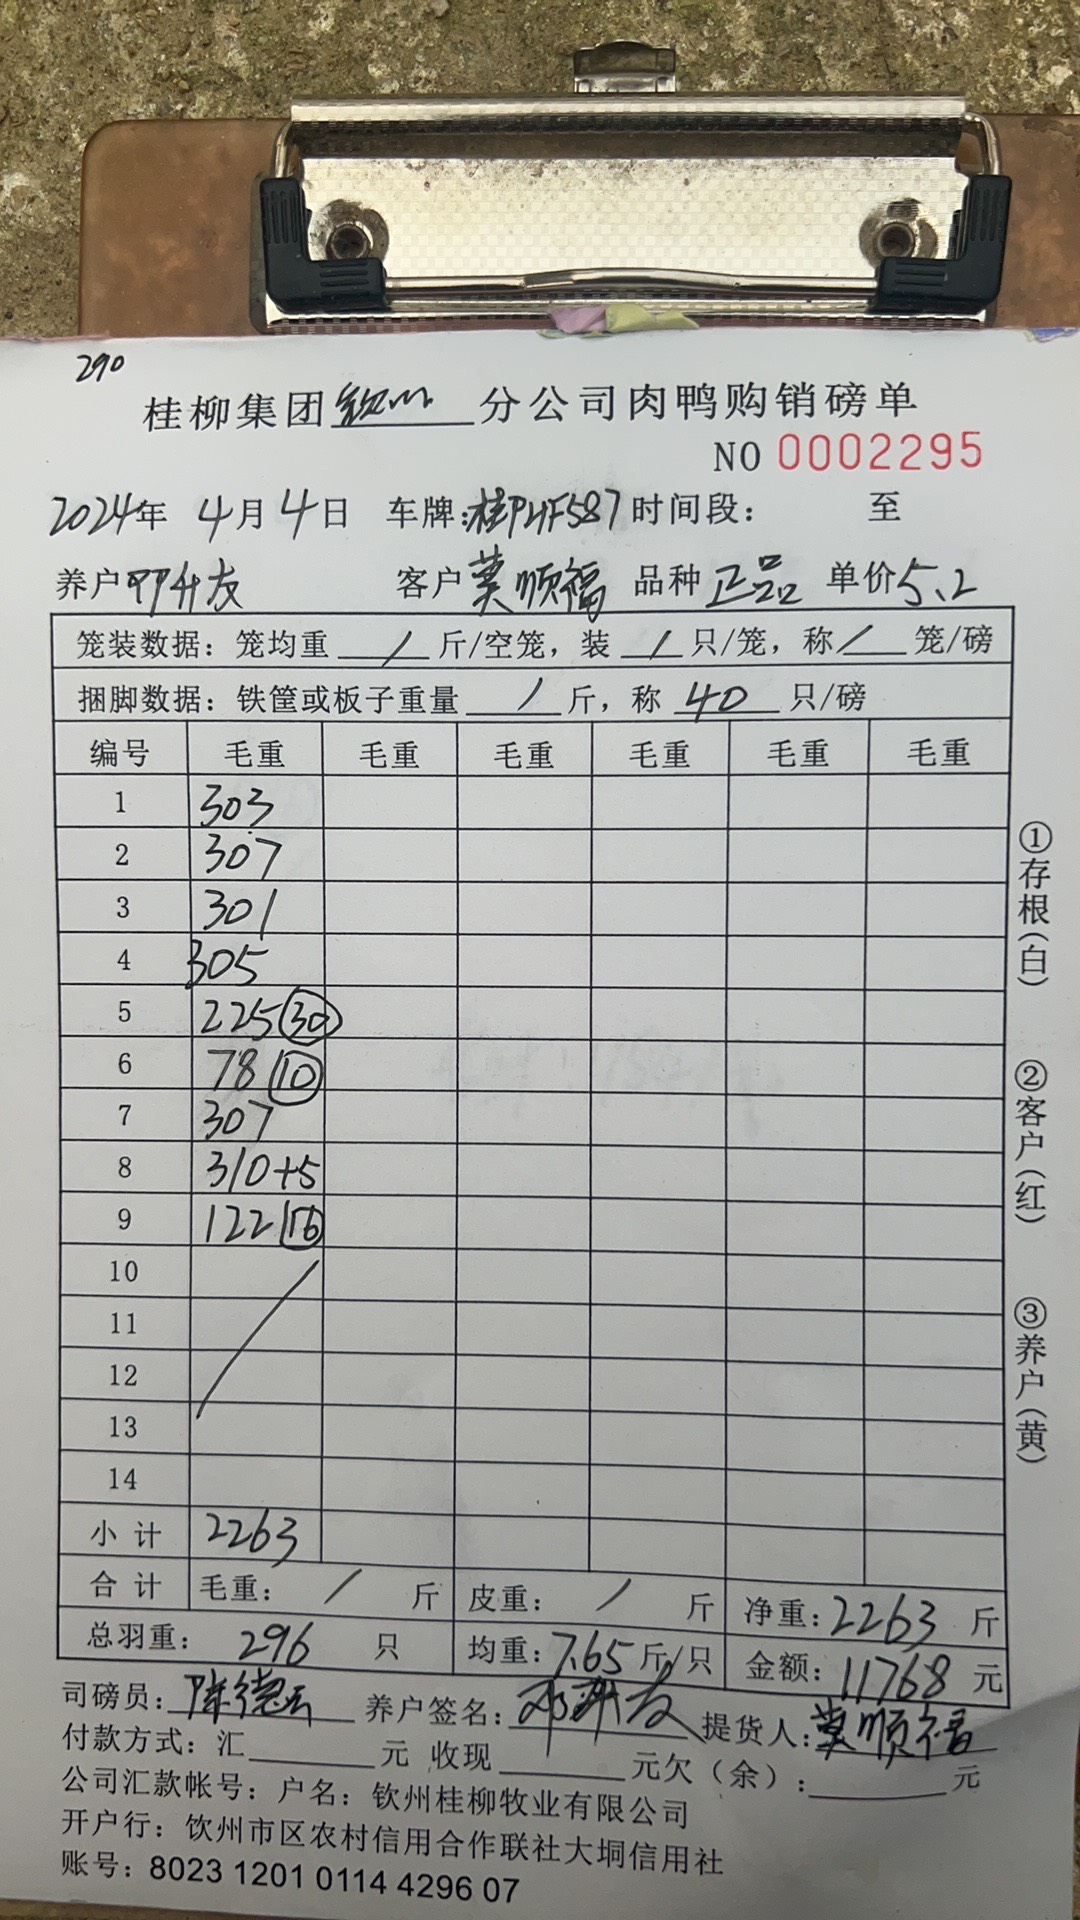 290
桂柳集团钦州分公司肉鸭购销磅单
NO 0002295
2024年 4月4日 车牌:桂PHF587 时间段: 至
养户 邓升友 客户 莫顺福 品种 正品 单价 5.2
笼装数据: 笼均重 / 斤/空笼, 装 / 只/笼, 称 / 笼/磅
捆脚数据: 铁筐或板子重量 / 斤, 称 40 只/磅
编号 毛重 毛重 毛重 毛重 毛重 毛重
1 303
2 307
3 301
4 305
5 225 30
6 78 10
7 307
8 310+5
9 122 16
10
11
12
13
14
小计 2263
合计 毛重: / 斤 皮重: / 斤 净重: 2263 斤
总羽重: 296 只 均重: 7.65 斤/只 金额: 11768 元
司磅员: 陈德云 养户签名: 邓升友 提货人: 莫顺福
付款方式: 汇 元 收现 元欠(余): 元
公司汇款帐号: 户名: 钦州桂柳牧业有限公司
开户行: 钦州市区农村信用合作联社大垌信用社
账号: 8023 1201 0114 4296 07
①存根(白)
②客户(红)
③养户(黄)